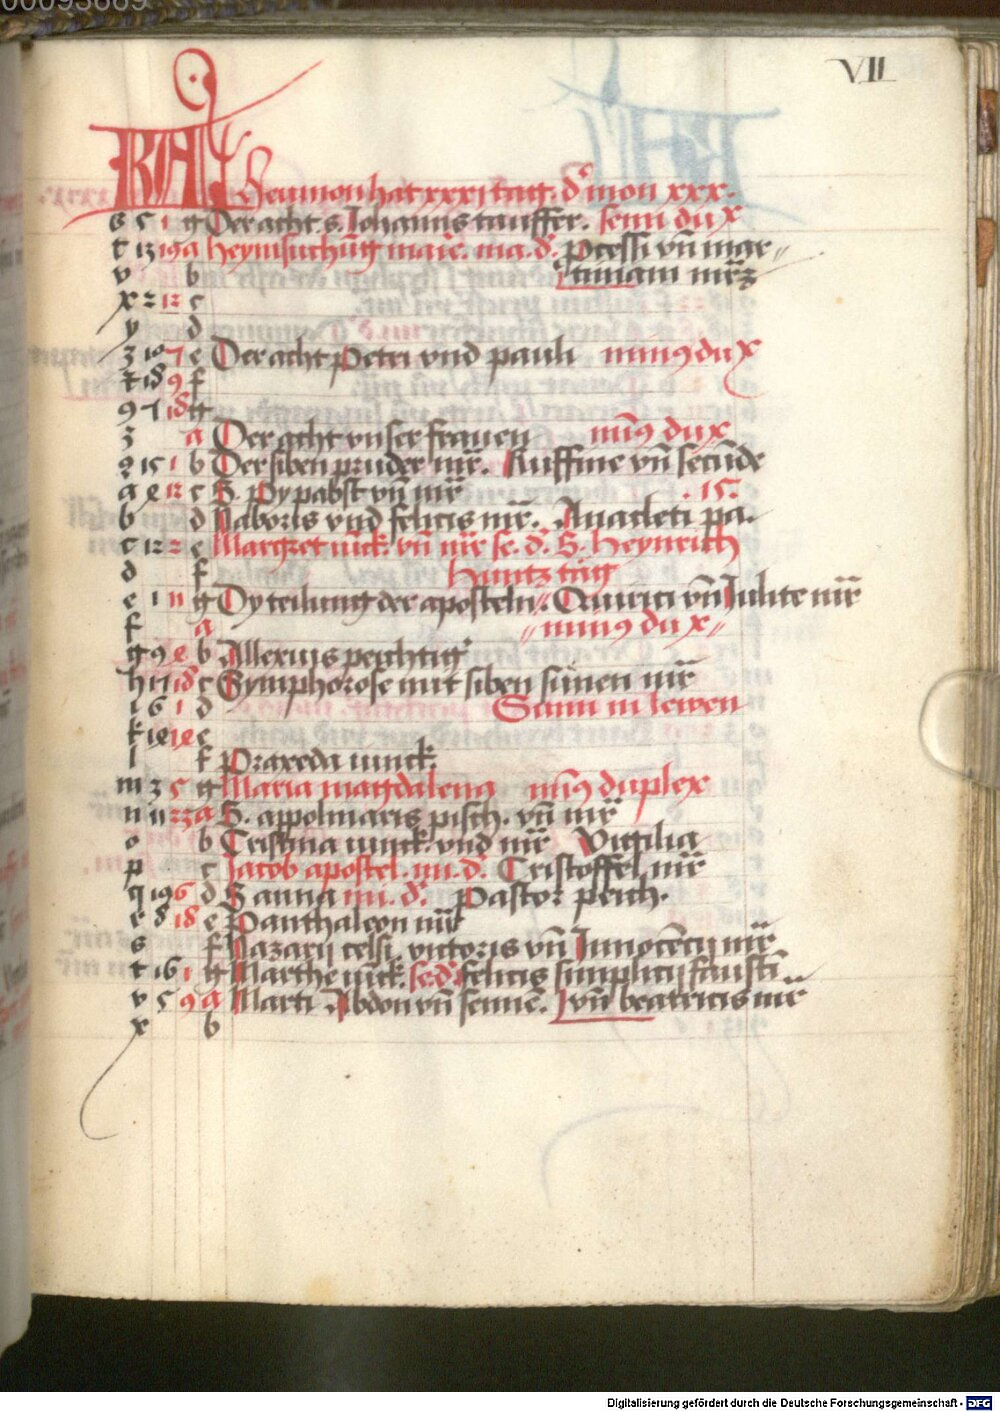 00093669
VII
KAL
Heumon hat xxxi tag. dˢ mon xxx.
s 5 1 g Der acht. s. Johanns tauffer. semi dux
t 13 19 a Heymsuchũg marie. ma. dˢ. Processi vñ mar〃
v b tiniani mr̃z
x 2 12 c
y d
z 10 7 e Der acht Petri vnd pauli minꝰ dux
t 18 9 f
9 7 18 g
z a Der acht vnser frawen minꝰ dux
2 15 1 b Der siben pruder mr̃. Ruffine vñ secũde
a 4 12 c S. Py pabst vñ mr̃ .15.
b d Naboris vnd felicis mr̃. Anacleti pa.
c 12 2 e Margret iũck. vñ mr̃ se. dˢ. S. Heynrich
d f Huntz täg
e 1 11 g Dy teilung der aposteln. Quirici vñ Julite mr̃
f a 〃minꝰ dux〃
g 9 4 b Allexius peichtigˢ
h 17 18 c Symphorose mit siben sünen mr̃
i 6 1 d Sunn in lewen
k 14 14 e
l f Praxeda iunck.
m 3 5 g Maria magdalena minꝰ duplex
n 11 23 a S. appolinaris pisch. vñ mr̃
o b Cristina iunck. vnd mr̃ Vigilia
p c Jacob apostel. mi. dˢ. Cristoffel mr̃
q 19 6 d S anna mi. dˢ. Pastor peich.
r 8 18 e Panthaleon mr̃
s f Nazarij celsi. victoris vñ Innocẽcij mr̃
t 16 1 g Marthe iũck. se. dˢ. felicis simplicij faustĩ
v 5 9 a Marti. Abdon vñ sennẽ. vñ beatricis mr̃
x b
Digitalisierung gefördert durch die Deutsche Forschungsgemeinschaft - DFG